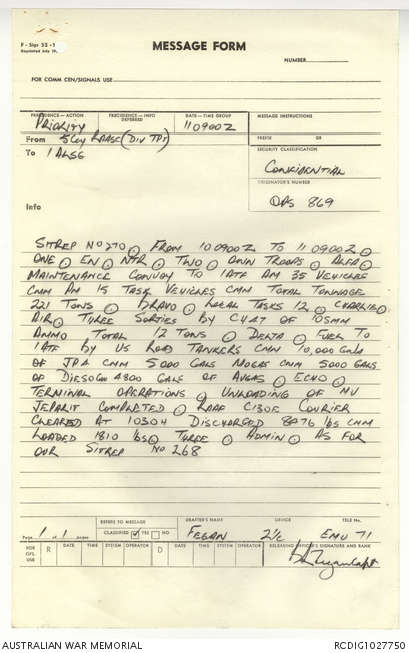 F - Sigs 52 - 1
MESSAGE FORM
NUMBER
FOR COMM CEN/SIGNALS USE
PRECEDENCE—ACTION PRECEDENCE—INFO DEFERRED DATE—TIME GROUP MESSAGE INSTRUCTIONS
PRIORITY 110900Z
PREFIX GR
From 5 Coy RAASC (DIV TPT)
SECURITY CLASSIFICATION
To 1 ALSG
CONFIDENTIAL
ORIGINATOR'S NUMBER
Info OPS 869
SITREP NO 270 . FROM 100900Z TO 110900Z .
ONE . EN . NTR . TWO . OWN TROOPS . ALFA .
MAINTENANCE CONVOY TO 1ATF AM 35 VEHICLES
CMM PM 15 TASK VEHICLES CMM TOTAL TONNAGE
221 TONS . BRAVO . LOCAL TASKS 12 . CHARLIE .
AIR . THREE SORTIES BY CH47 OF 105MM
AMMO TOTAL 12 TONS . DELTA . FUEL TO
1ATF BY US ROAD TANKERS CMM 10,000 GALS
OF JP4 CMM 5000 GALS MOGAS CMM 5000 GALS
OF DIESO CMM 4800 GALS OF AVGAS . ECHO .
TERMINAL OPERATIONS . UNLOADING OF MV
JEPARIT COMPLETED . RAAF C130E COURIER
CLEARED AT 1030H DISCHARGED 8976 lbs CMM
LOADED 1810 lbs . THREE . ADMIN . AS FOR
OUR SITREP NO 268
Page 1 of 1 pages
REFERS TO MESSAGE
CLASSIFIED YES NO
DRAFTER'S NAME FEGAN
OFFICE 2i/c
TELE No. EMU 71
FOR OPS. USE R DATE TIME SYSTEM OPERATOR D DATE TIME SYSTEM OPERATOR RELEASING OFFICER'S SIGNATURE AND RANK
AUSTRALIAN WAR MEMORIAL RCDIG1027750